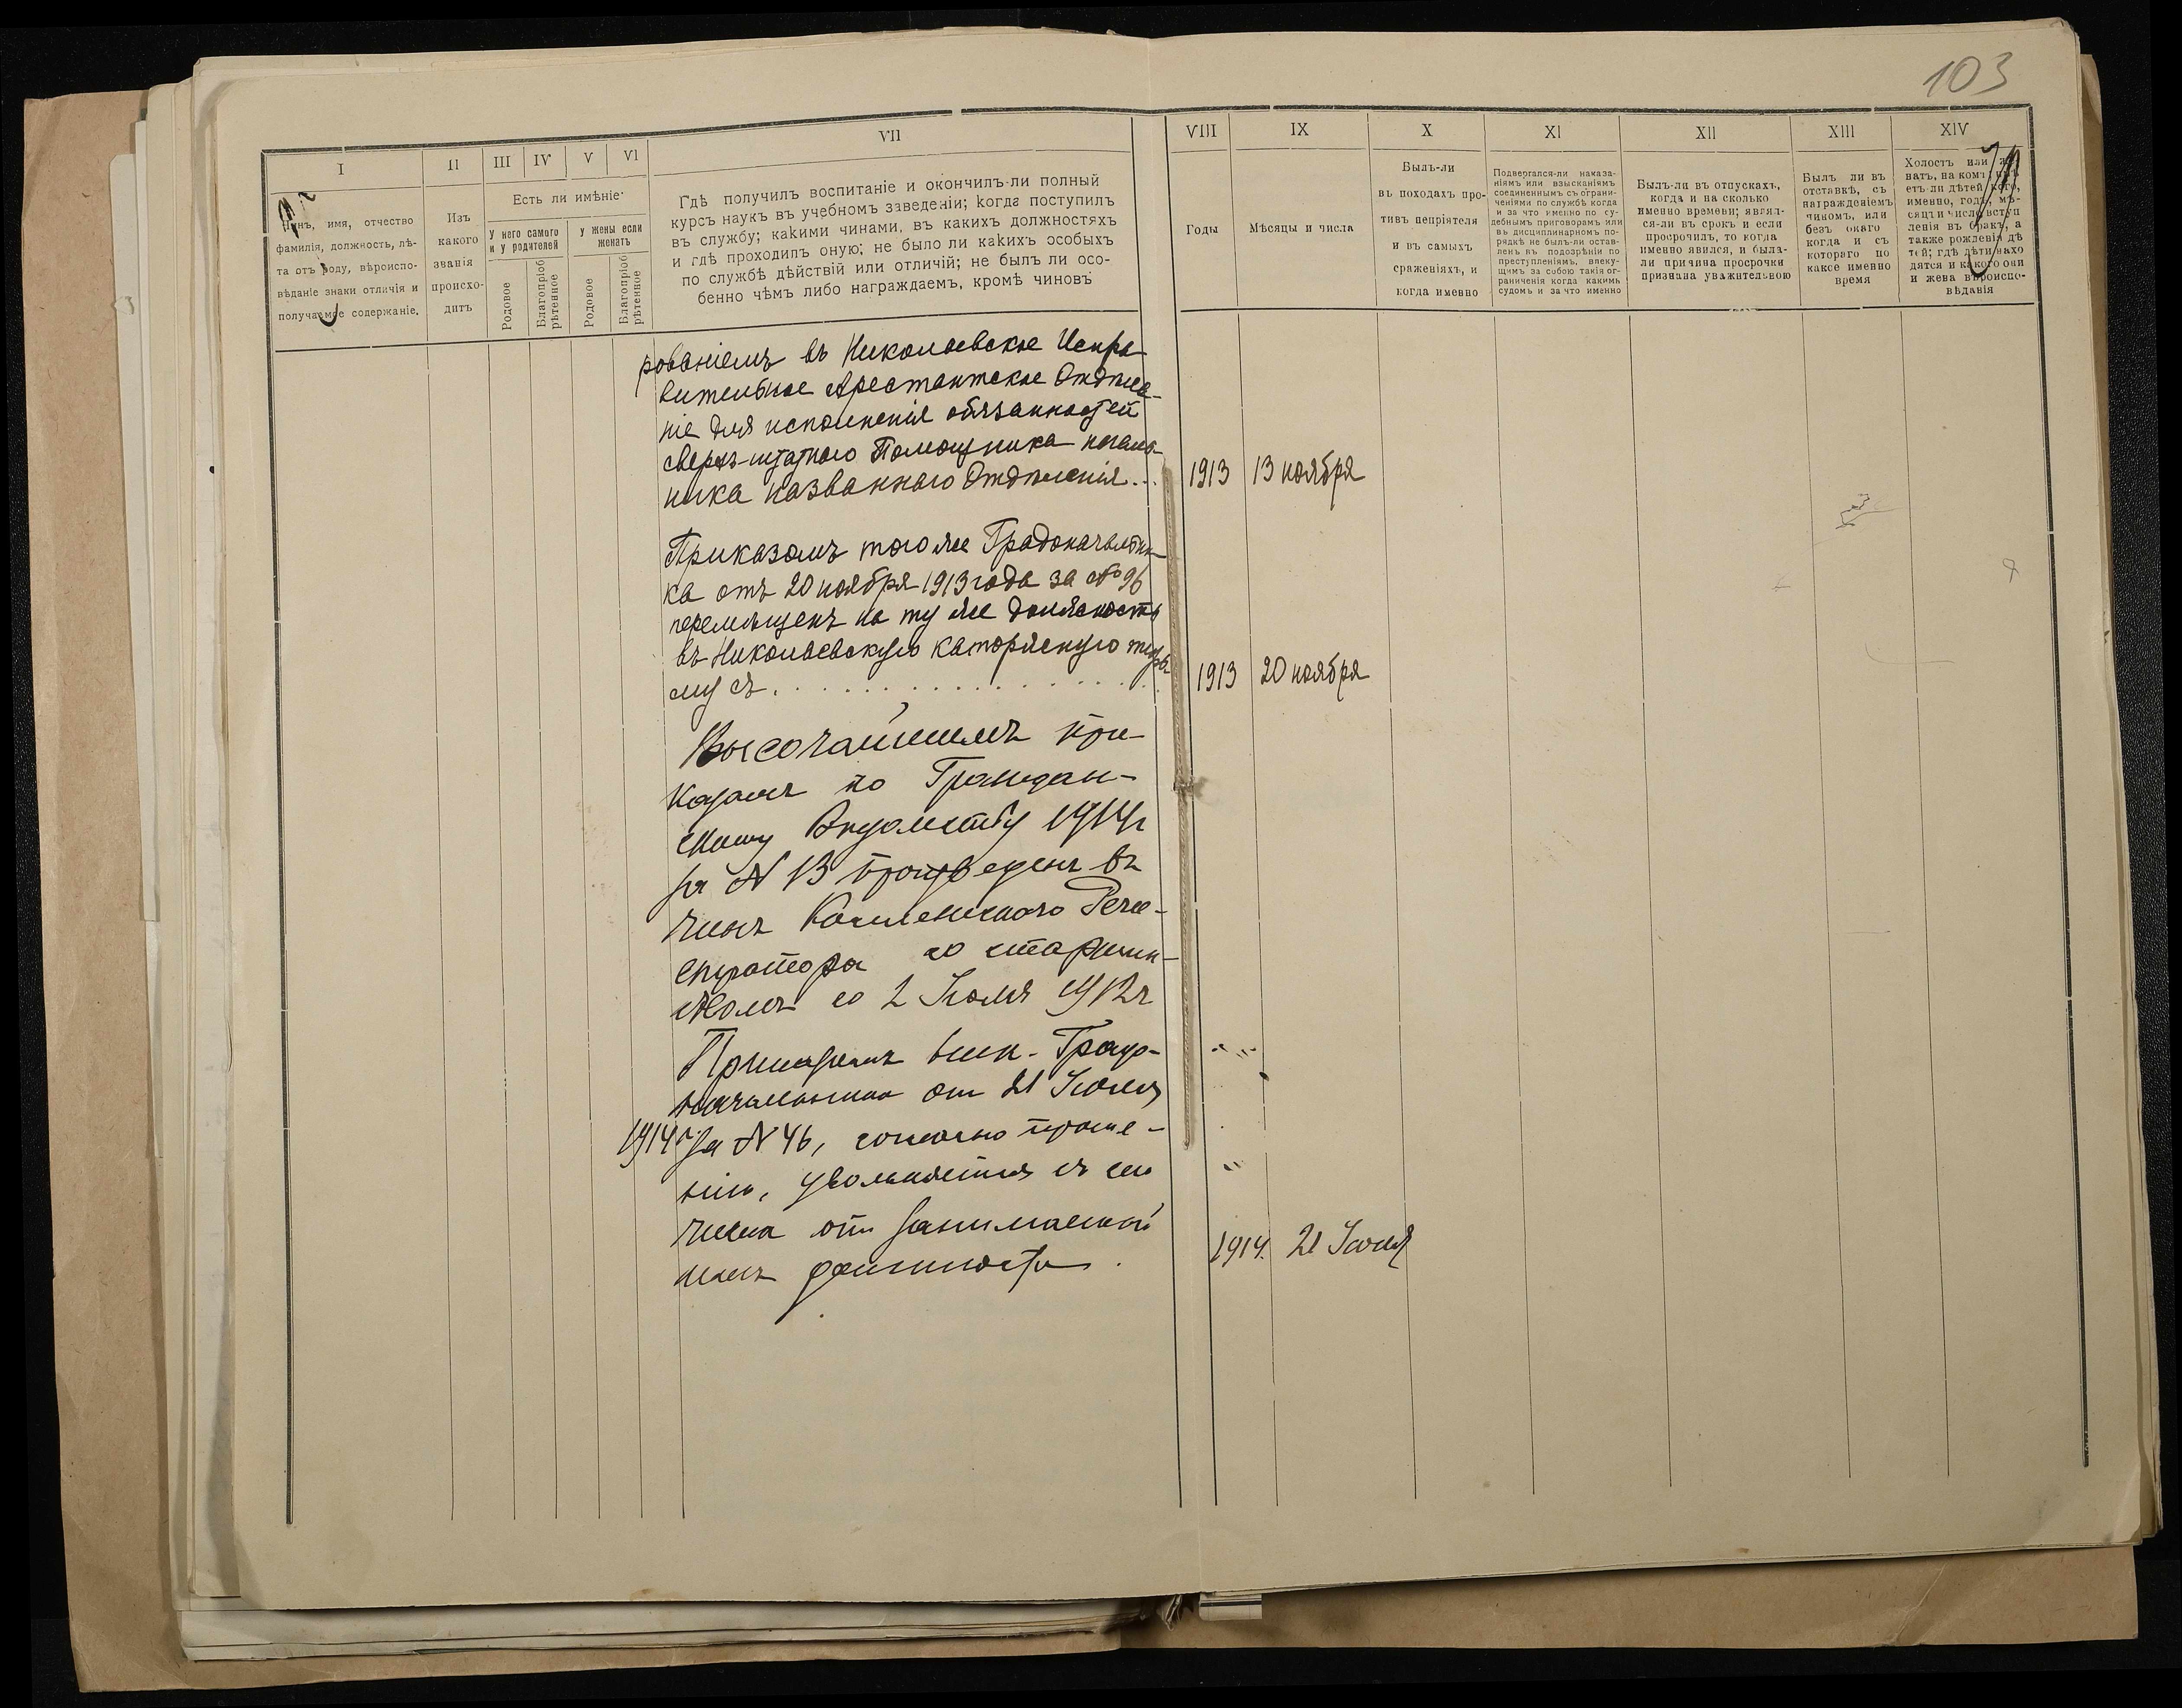 103
I
II
III
IV
V
VI
VII
VIII
IX
X
XI
XII
XIII
XIV
Чинъ, имя, отчество
фамилія, должность, лѣ-
та отъ роду, вѣроиспо-
вѣданіе знаки отличія и
получаемое содержаніе.
Изъ
какого
званія
происхо-
дитъ
Есть ли имѣніе
У него самого
и у родителей
У жены если
женатъ
Родовое
Благопріоб
рѣтенное
Родовое
Благопріоб
рѣтенное
Гдѣ получилъ воспитаніе и окончилъ-ли полный
курсъ наукъ въ учебномъ заведеніи; когда поступилъ
въ службу; какими чинами, въ какихъ должностяхъ
и гдѣ проходилъ оную; не было ли какихъ особыхъ
по службѣ дѣйствій или отличій; не былъ ли осо-
бенно чѣмъ либо награждаемъ, кромѣ чиновъ
Годы
Мѣсяцы и числа
Былъ-ли
въ походахъ про-
тивъ непріятеля
и въ самыхъ
сраженіяхъ, и
когда именно
Подвергался-ли наказа-
ніямъ или взысканіямъ
соединеннымъ съ ограни-
ченіями по службѣ когда
и за что именно по су-
дебнымъ приговорамъ или
въ дисциплинарномъ по-
рядкѣ не былъ-ли остав-
ленъ въ подозрѣніи по
преступленіямъ, влеку-
щимъ за собою такія ог-
раниченія когда какимъ
судомъ и за что именно
Былъ-ли въ отпускахъ,
когда и на сколько
именно времени; являл-
ся-ли въ срокъ и если
просрочилъ, то когда
именно явился, и была-
ли причина просрочки
признана уважительною
Былъ ли въ
отставкѣ, съ
награжденіемъ
чиномъ, или
безъ онаго
когда и съ
котораго по
какое именно
время
Холостъ или же-
натъ, на комъ имѣ
етъ-ли дѣтей кого,
именно, годъ, мѣ-
сяцъ и число вступ
ленія въ бракъ, а
также рожденія дѣ
тей; гдѣ дѣти нахо
дятся и какого они
и жена вѣроиспо-
вѣданія
рованіемъ въ Николаевское Испра-
вительное Арестантское Отдѣле-
ніе для исполненія обязанностей
сверхъ-штатного Помощника началь-
ника названнаго Отдѣленія...
1913 13 ноября
Приказомъ того же Градоначальни-
ка отъ 20 ноября 1913 года за № 96
перемѣщенъ на ту же должность
въ Николаевскую каторжную тюрь-
му съ
1913 20 ноября
Высочайшимъ при-
казомъ по Граждан-
скому Вѣдомству 1914 г
за № 13 произведенъ въ
чинъ Коллежскаго Реги-
стратора со старшин-
ствомъ со 2 Іюля 1912 г
Приказомъ Ник. Градо-
начальника от 21 Іюля
1914 г. за № 46, согласно проше-
нію, увольняется съ сего
числа отъ занимаемой
имъ должности.
1914. 21 Іюля